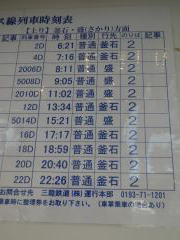 線列車時刻表
【上り】釜石・盛(さかり)方面
記事 列車番号 時刻 種別 行先 のりば 記事
2D 6:21 普通 釜石 2
4D 7:16 普通 釜石 2
2006D 8:11 普通 盛 2
5008D 9:05 普通 盛 2
2010D 11:02 普通 盛 2
12D 13:34 普通 釜石 2
5014D 15:21 普通 盛 2
16D 17:17 普通 釜石 2
18D 18:59 普通 釜石 2
20D 20:40 普通 釜石 2
22D 22:26 普通 釜石 2
お問合せ先 三陸鉄道(株)運行本部 0193-71-1201
乗車時に整理券をお取り下さい。(車掌乗車の場合あり)